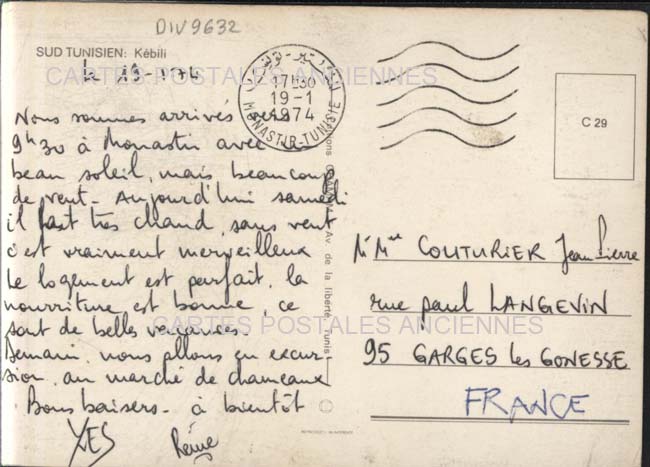 DIV9632
SUD TUNISIEN: Kébili
le 19-1-74
CARTES POSTALES ANCIENNES
17H30
19-1
1974
MONASTIR-TUNISIE
C 29
Nous sommes arrivés vers
9h30 à Monastir avec
beau soleil, mais beaucoup
de vent - Aujourd'hui samedi
il fait très chaud, sans vent
c'est vraiment merveilleux
Le logement est parfait, la
nourriture est bonne, ce
sont de belles vacances.
Demain, nous allons en excur-
sion au marché de chameaux
Bons baisers - à bientôt
YVES
Av. de la liberté, Tunis
Mr Mme COUTURIER Jean Pierre
rue paul LANGEVIN
CARTES POSTALES ANCIENNES
95 GARGES les GONESSE
FRANCE